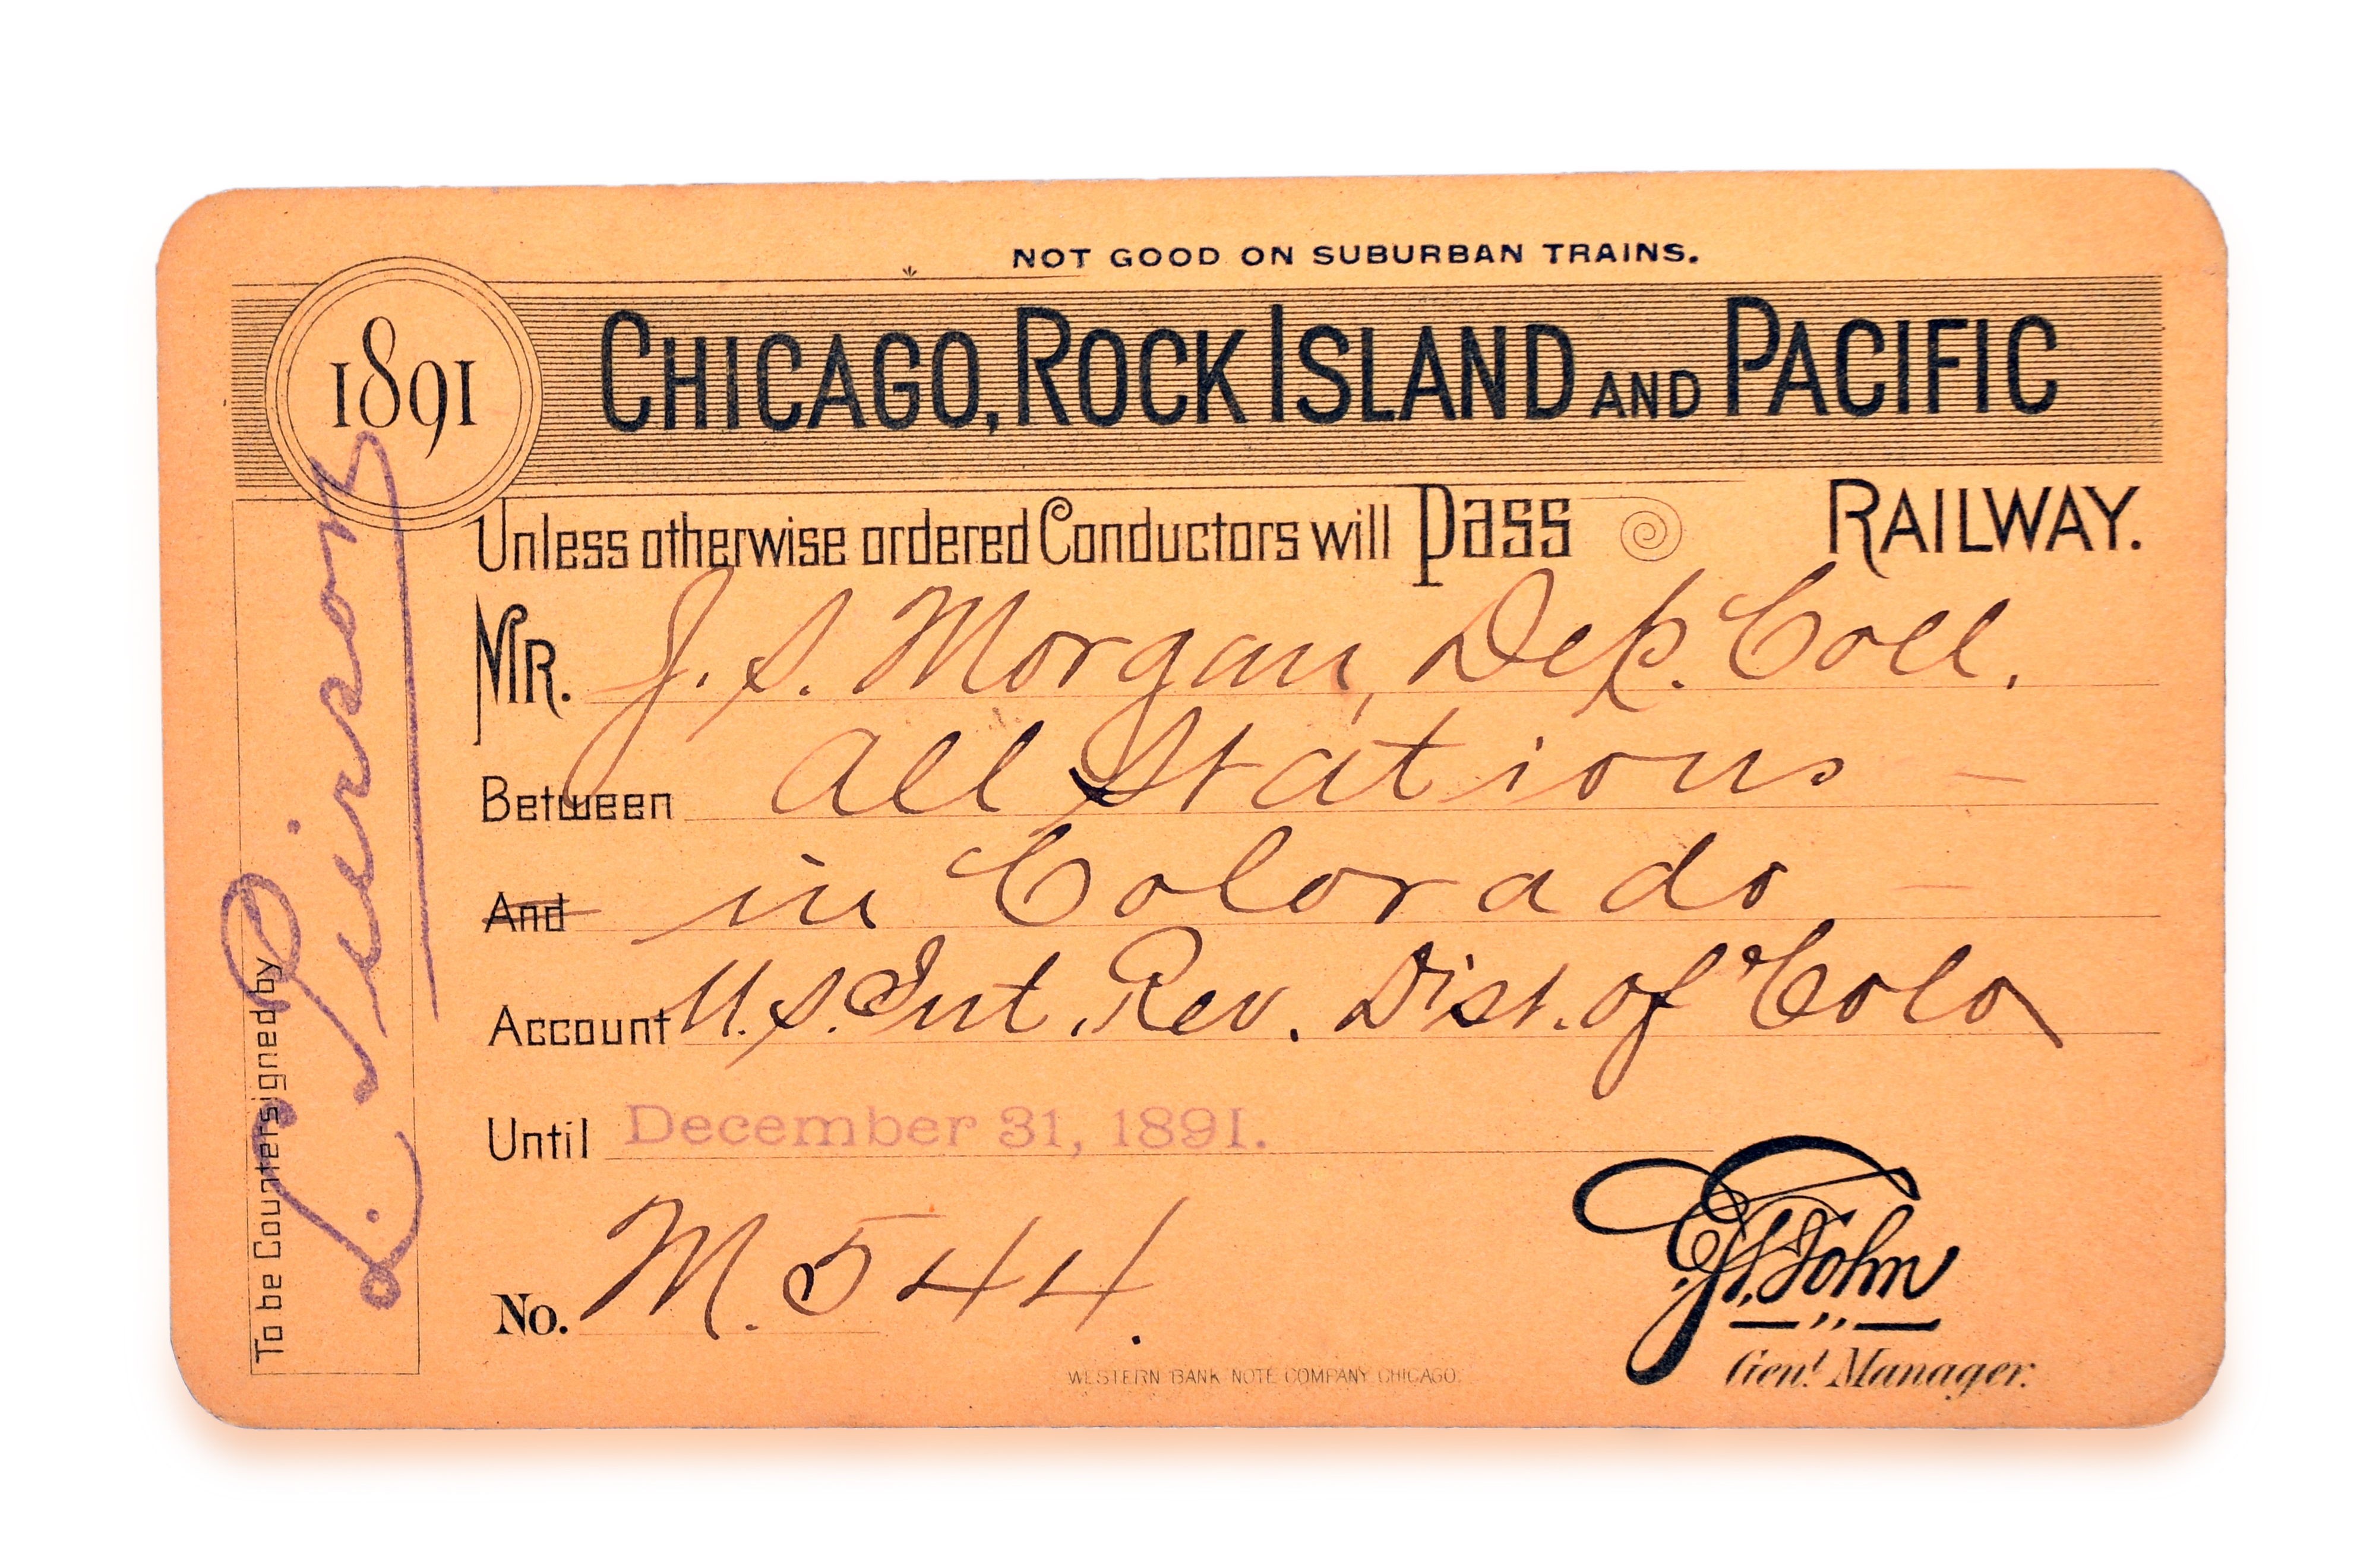 NOT GOOD ON SUBURBAN TRAINS.
1891
CHICAGO, ROCK ISLAND AND PACIFIC
RAILWAY.
Unless otherwise ordered Conductors will Pass
MR. J. S. Morgan, Dep. Coll.
Between All Stations —
And in Colorado —
Account U.S. Int. Rev. Dist. of Colo
Until December 31, 1891.
No. M. 544.
E. St. John
Gen'l Manager.
WESTERN BANK NOTE COMPANY CHICAGO.
To be Countersigned by
Pierson